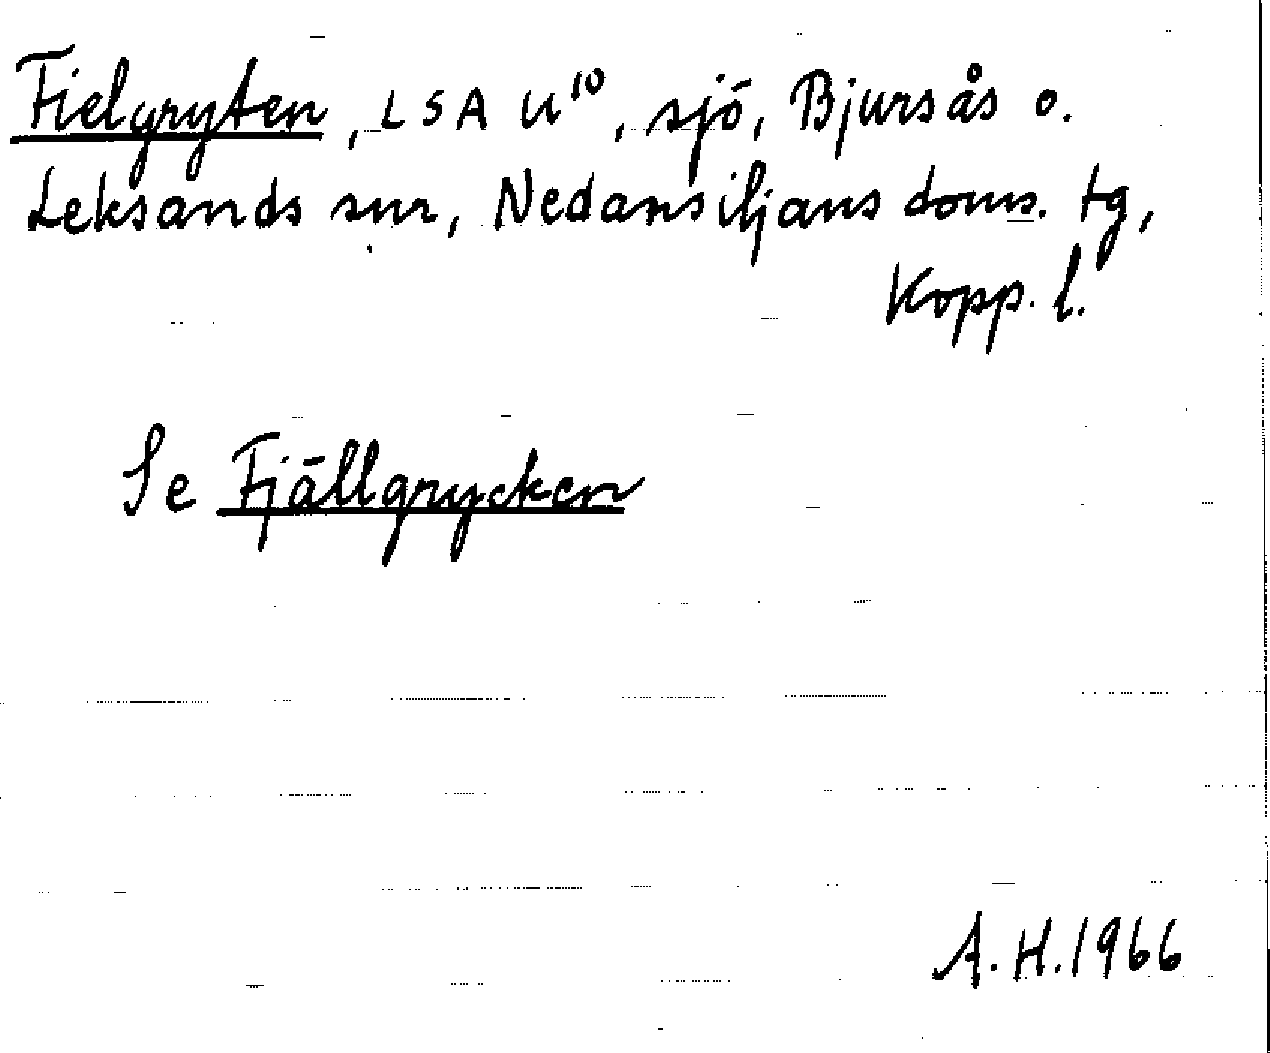 Fielgryten, LSA U¹⁰, sjö, Bjursås o.
Leksands snr, Nedansiljans doms. tg,
Kopp. l.
Se Fjällgrycken
A.H. 1966